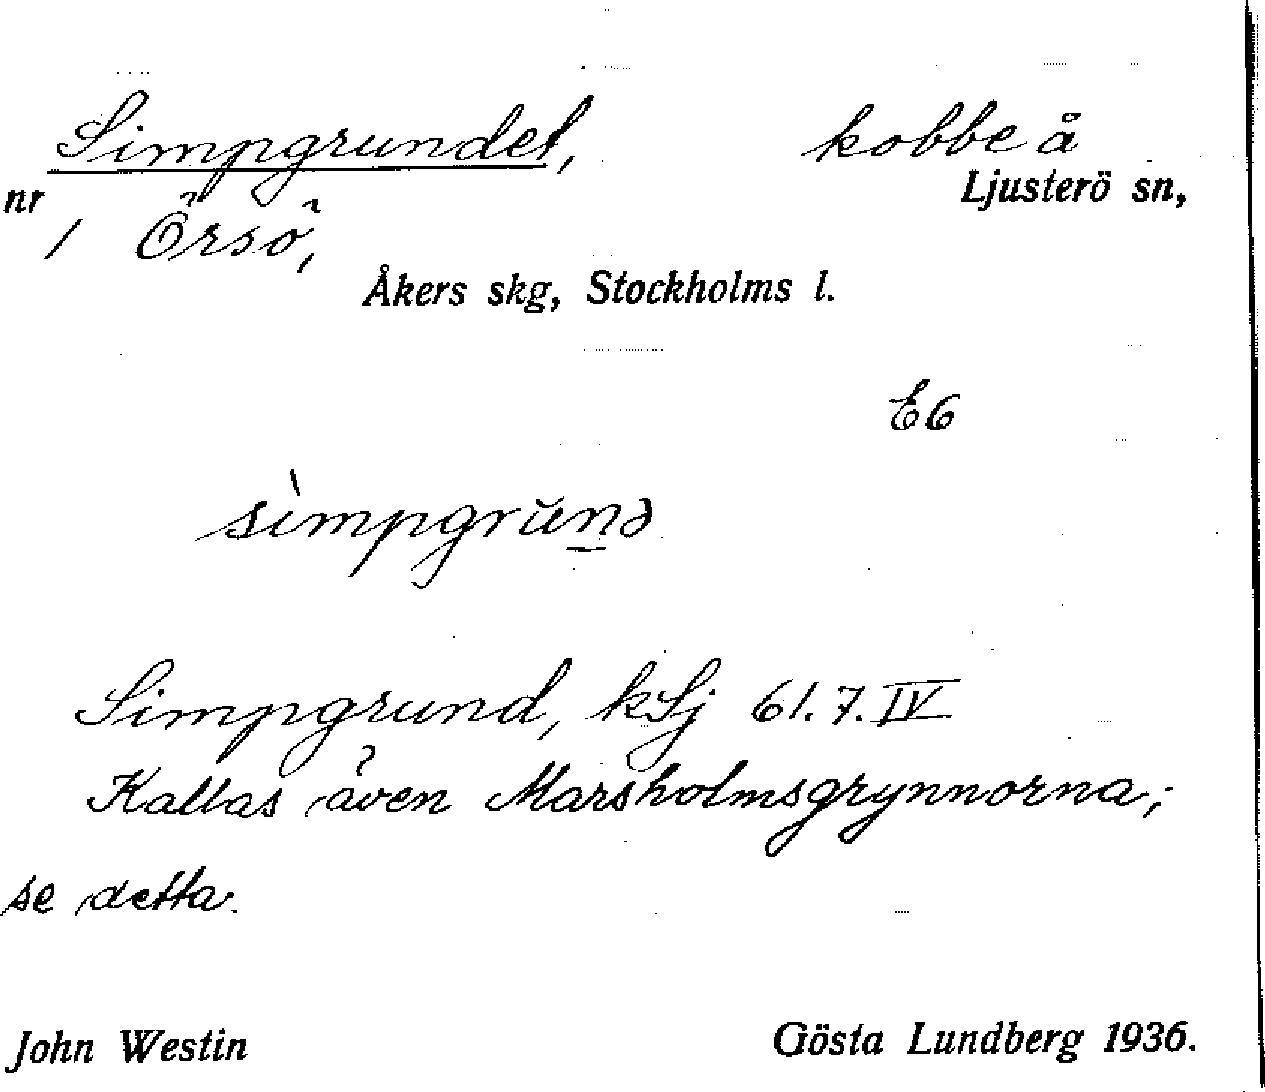 Simpgrundet, kobbe å
nr Ljusterö sn,
1 Örsö,
Åkers skg, Stockholms l.
E6
sìmpgrŭn̲ə
Simpgrund, kSj 61.7.IV
Kallas även Marsholmsgrynnorna;
se detta.
John Westin Gösta Lundberg 1936.